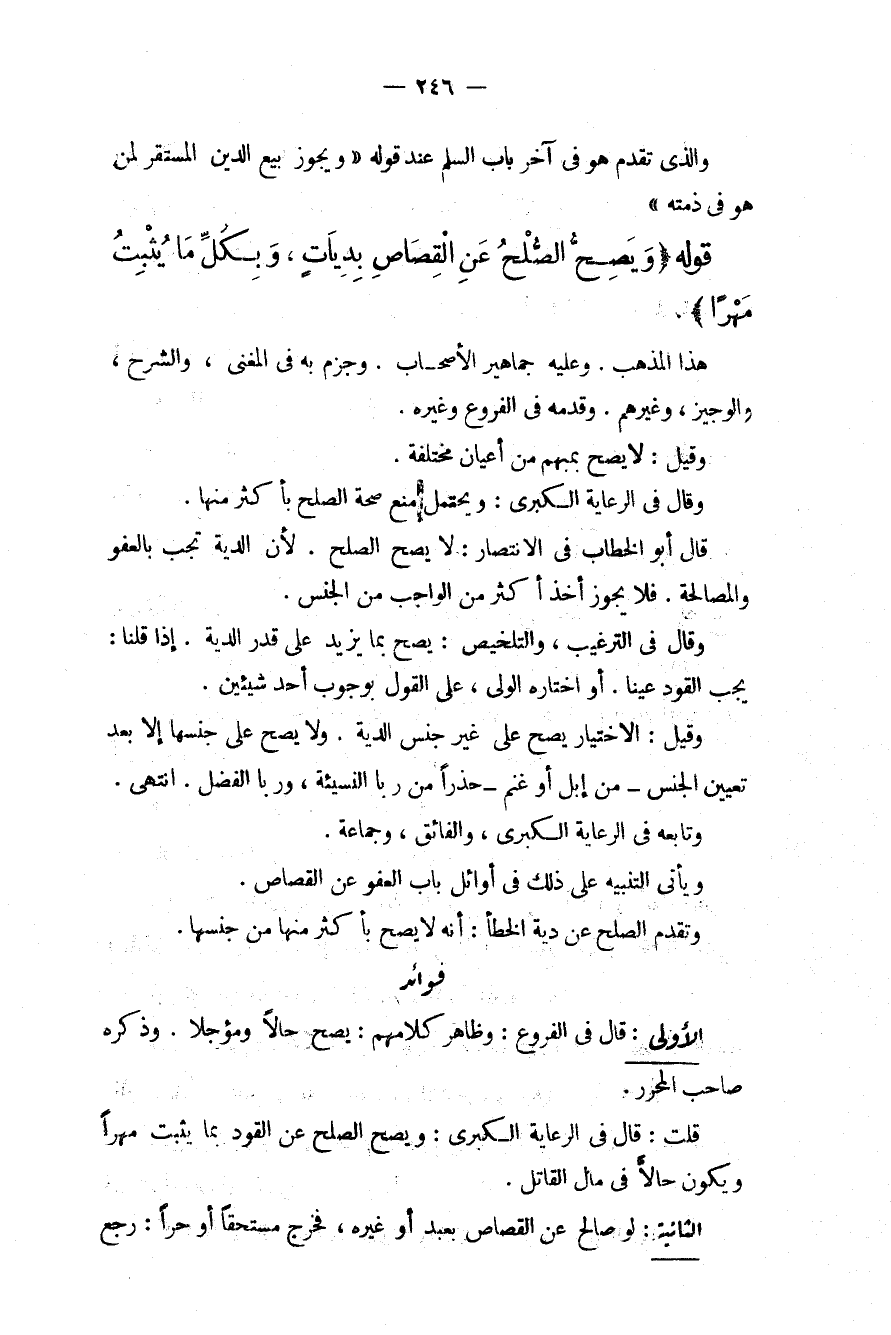 — ٢٤٦ —
والذى تقدم هو فى آخر باب السلم عند قوله « ويجوز بيع الدين المستقر لمن
هو فى ذمته »
قوله ﴿ وَيَصِحُّ الصُّلْحُ عَنِ الْقِصَاصِ بِدِيَاتٍ ، وَبِكُلِّ مَا يُثْبِتُ
مَهْرًا ﴾ .
هذا المذهب . وعليه جماهير الأصحاب . وجزم به فى المغنى ، والشرح ،
والوجيز ، وغيرهم . وقدمه فى الفروع وغيره .
وقيل : لا يصح بمبهم من أعيان مختلفة .
وقال فى الرعاية الكبرى : ويحتمل منع صحة الصلح بأكثر منها .
قال أبو الخطاب فى الانتصار : لا يصح الصلح . لأن الدية تجب بالعفو
والمصالحة . فلا يجوز أخذ أكثر من الواجب من الجنس .
وقال فى الترغيب ، والتلخيص : يصح بما يزيد على قدر الدية . إذا قلنا :
يجب القود عينا . أو اختاره الولى ، على القول بوجوب أحد شيئين .
وقيل : الاختيار يصح على غير جنس الدية . ولا يصح على جنسها إلا بعد
تعيين الجنس – من إبل أو غنم – حذراً من ربا النسيئة ، وربا الفضل . انتهى .
وتابعه فى الرعاية الكبرى ، والفائق ، وجماعة .
ويأتى التنبيه على ذلك فى أوائل باب العفو عن القصاص .
وتقدم الصلح عن دية الخطأ : أنه لا يصح بأكثر منها من جنسها .
فوائد
الأولى : قال فى الفروع : وظاهر كلامهم : يصح حالاً ومؤجلا . وذكره
صاحب المحرر .
قلت : قال فى الرعاية الكبرى : ويصح الصلح عن القود بما يثبت مهراً
ويكون حالاً فى مال القاتل .
الثانية : لو صالح عن القصاص بعبد أو غيره ، فخرج مستحقاً أو حراً : رجع